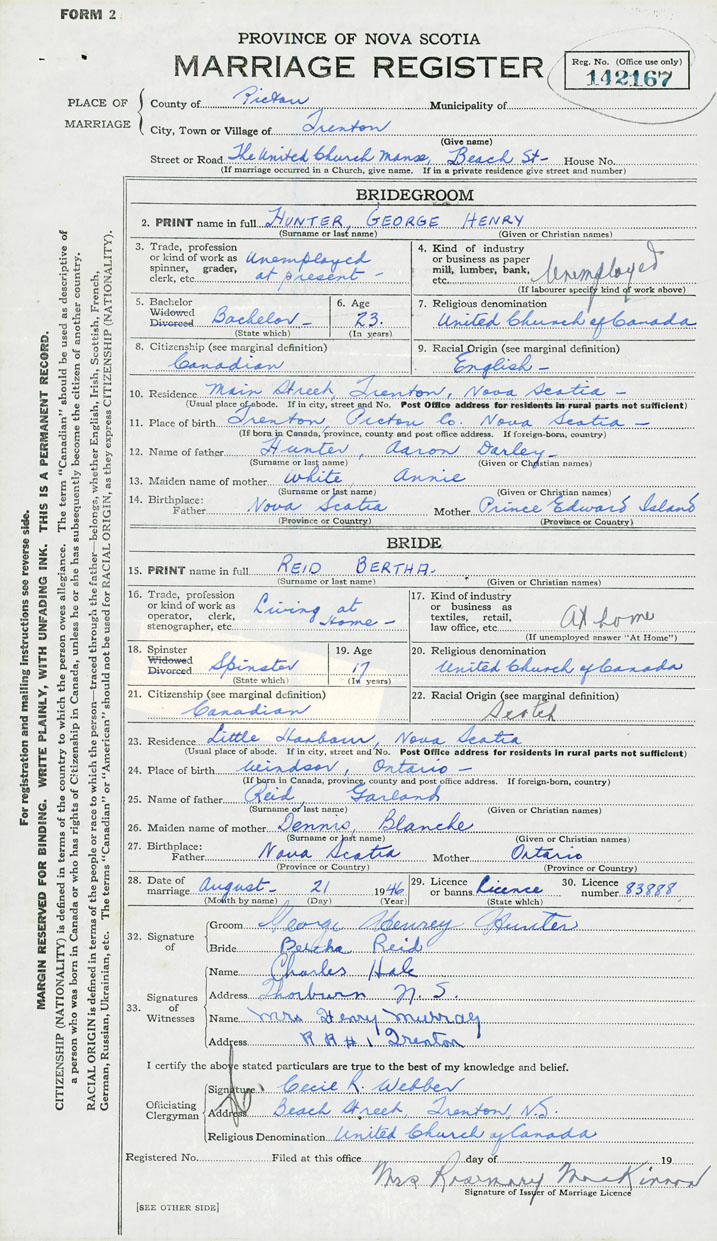 FORM 2
PROVINCE OF NOVA SCOTIA
MARRIAGE REGISTER
Reg. No. (Office use only)
142167
PLACE OF MARRIAGE
County of Pictou Municipality of
City, Town or Village of Trenton
(Give name)
Street or Road The United Church Manse, Beach St- House No.
(If marriage occurred in a Church, give name. If in a private residence give street and number)
BRIDEGROOM
2. PRINT name in full HUNTER, GEORGE HENRY
(Surname or last name) (Given or Christian names)
3. Trade, profession or kind of work as spinner, grader, clerk, etc. Unemployed at present -
4. Kind of industry or business as paper mill, lumber, bank, etc. Unemployed
(If labourer specify kind of work above)
5. Bachelor Widowed Divorced Bachelor -
(State which)
6. Age 23.
(In years)
7. Religious denomination
United Church of Canada
8. Citizenship (see marginal definition)
Canadian
9. Racial Origin (see marginal definition)
English -
10. Residence Main Street, Trenton, Nova Scotia -
(Usual place of abode. If in city, street and No. Post Office address for residents in rural parts not sufficient)
11. Place of birth Trenton, Pictou Co. Nova Scotia -
(If born in Canada, province, county and post office address. If foreign-born, country)
12. Name of father Hunter, Aaron Darley -
(Surname or last name) (Given or Christian names)
13. Maiden name of mother White, Annie
(Surname or last name) (Given or Christian names)
14. Birthplace:
Father Nova Scotia Mother Prince Edward Island
(Province or Country) (Province or Country)
BRIDE
15. PRINT name in full REID BERTHA -
(Surname or last name) (Given or Christian names)
16. Trade, profession or kind of work as operator, clerk, stenographer, etc. Living at Home -
17. Kind of industry or business as textiles, retail, law office, etc. At home
(If unemployed answer "At Home")
18. Spinster Widowed Divorced Spinster
(State which)
19. Age 17
(In years)
20. Religious denomination
United Church of Canada
21. Citizenship (see marginal definition)
Canadian
22. Racial Origin (see marginal definition)
Scotch
23. Residence Little Harbour, Nova Scotia
(Usual place of abode. If in city, street and No. Post Office address for residents in rural parts not sufficient)
24. Place of birth Windsor, Ontario -
(If born in Canada, province, county and post office address. If foreign-born, country)
25. Name of father Reid, Garland
(Surname or last name) (Given or Christian names)
26. Maiden name of mother Dennis, Blanche
(Surname or last name) (Given or Christian names)
27. Birthplace:
Father Nova Scotia Mother Ontario
(Province or Country) (Province or Country)
28. Date of marriage August - 21 1946
(Month by name) (Day) (Year)
29. Licence or banns Licence
(State which)
30. Licence number 83888
32. Signature of
Groom George Henrey Hunter
Bride Bertha Reid
33. Signatures of Witnesses
Name Charles Hale
Address Thorburn N. S.
Name Mrs Henry Murray
Address R R # 1 Trenton
I certify the above stated particulars are true to the best of my knowledge and belief.
Officiating Clergyman
Signature Cecil R. Webber
Address Beach Street, Trenton, N.S.
Religious Denomination United Church of Canada
Registered No. Filed at this office day of 19
Mrs Rosemary MacKinnon
Signature of Issuer of Marriage Licence
[SEE OTHER SIDE]
For registration and mailing instructions see reverse side.
MARGIN RESERVED FOR BINDING. WRITE PLAINLY, WITH UNFADING INK. THIS IS A PERMANENT RECORD.
CITIZENSHIP (NATIONALITY) is defined in terms of the country to which the person owes allegiance. The term "Canadian" should be used as descriptive of
a person who was born in Canada or who has rights of Citizenship in Canada, unless he or she has subsequently become the citizen of another country.
RACIAL ORIGIN is defined in terms of the people or race to which the person—traced through the father—belongs, whether English, Irish, Scottish, French,
German, Russian, Ukrainian, etc. The terms "Canadian" or "American" should not be used for RACIAL ORIGIN, as they express CITIZENSHIP (NATIONALITY).